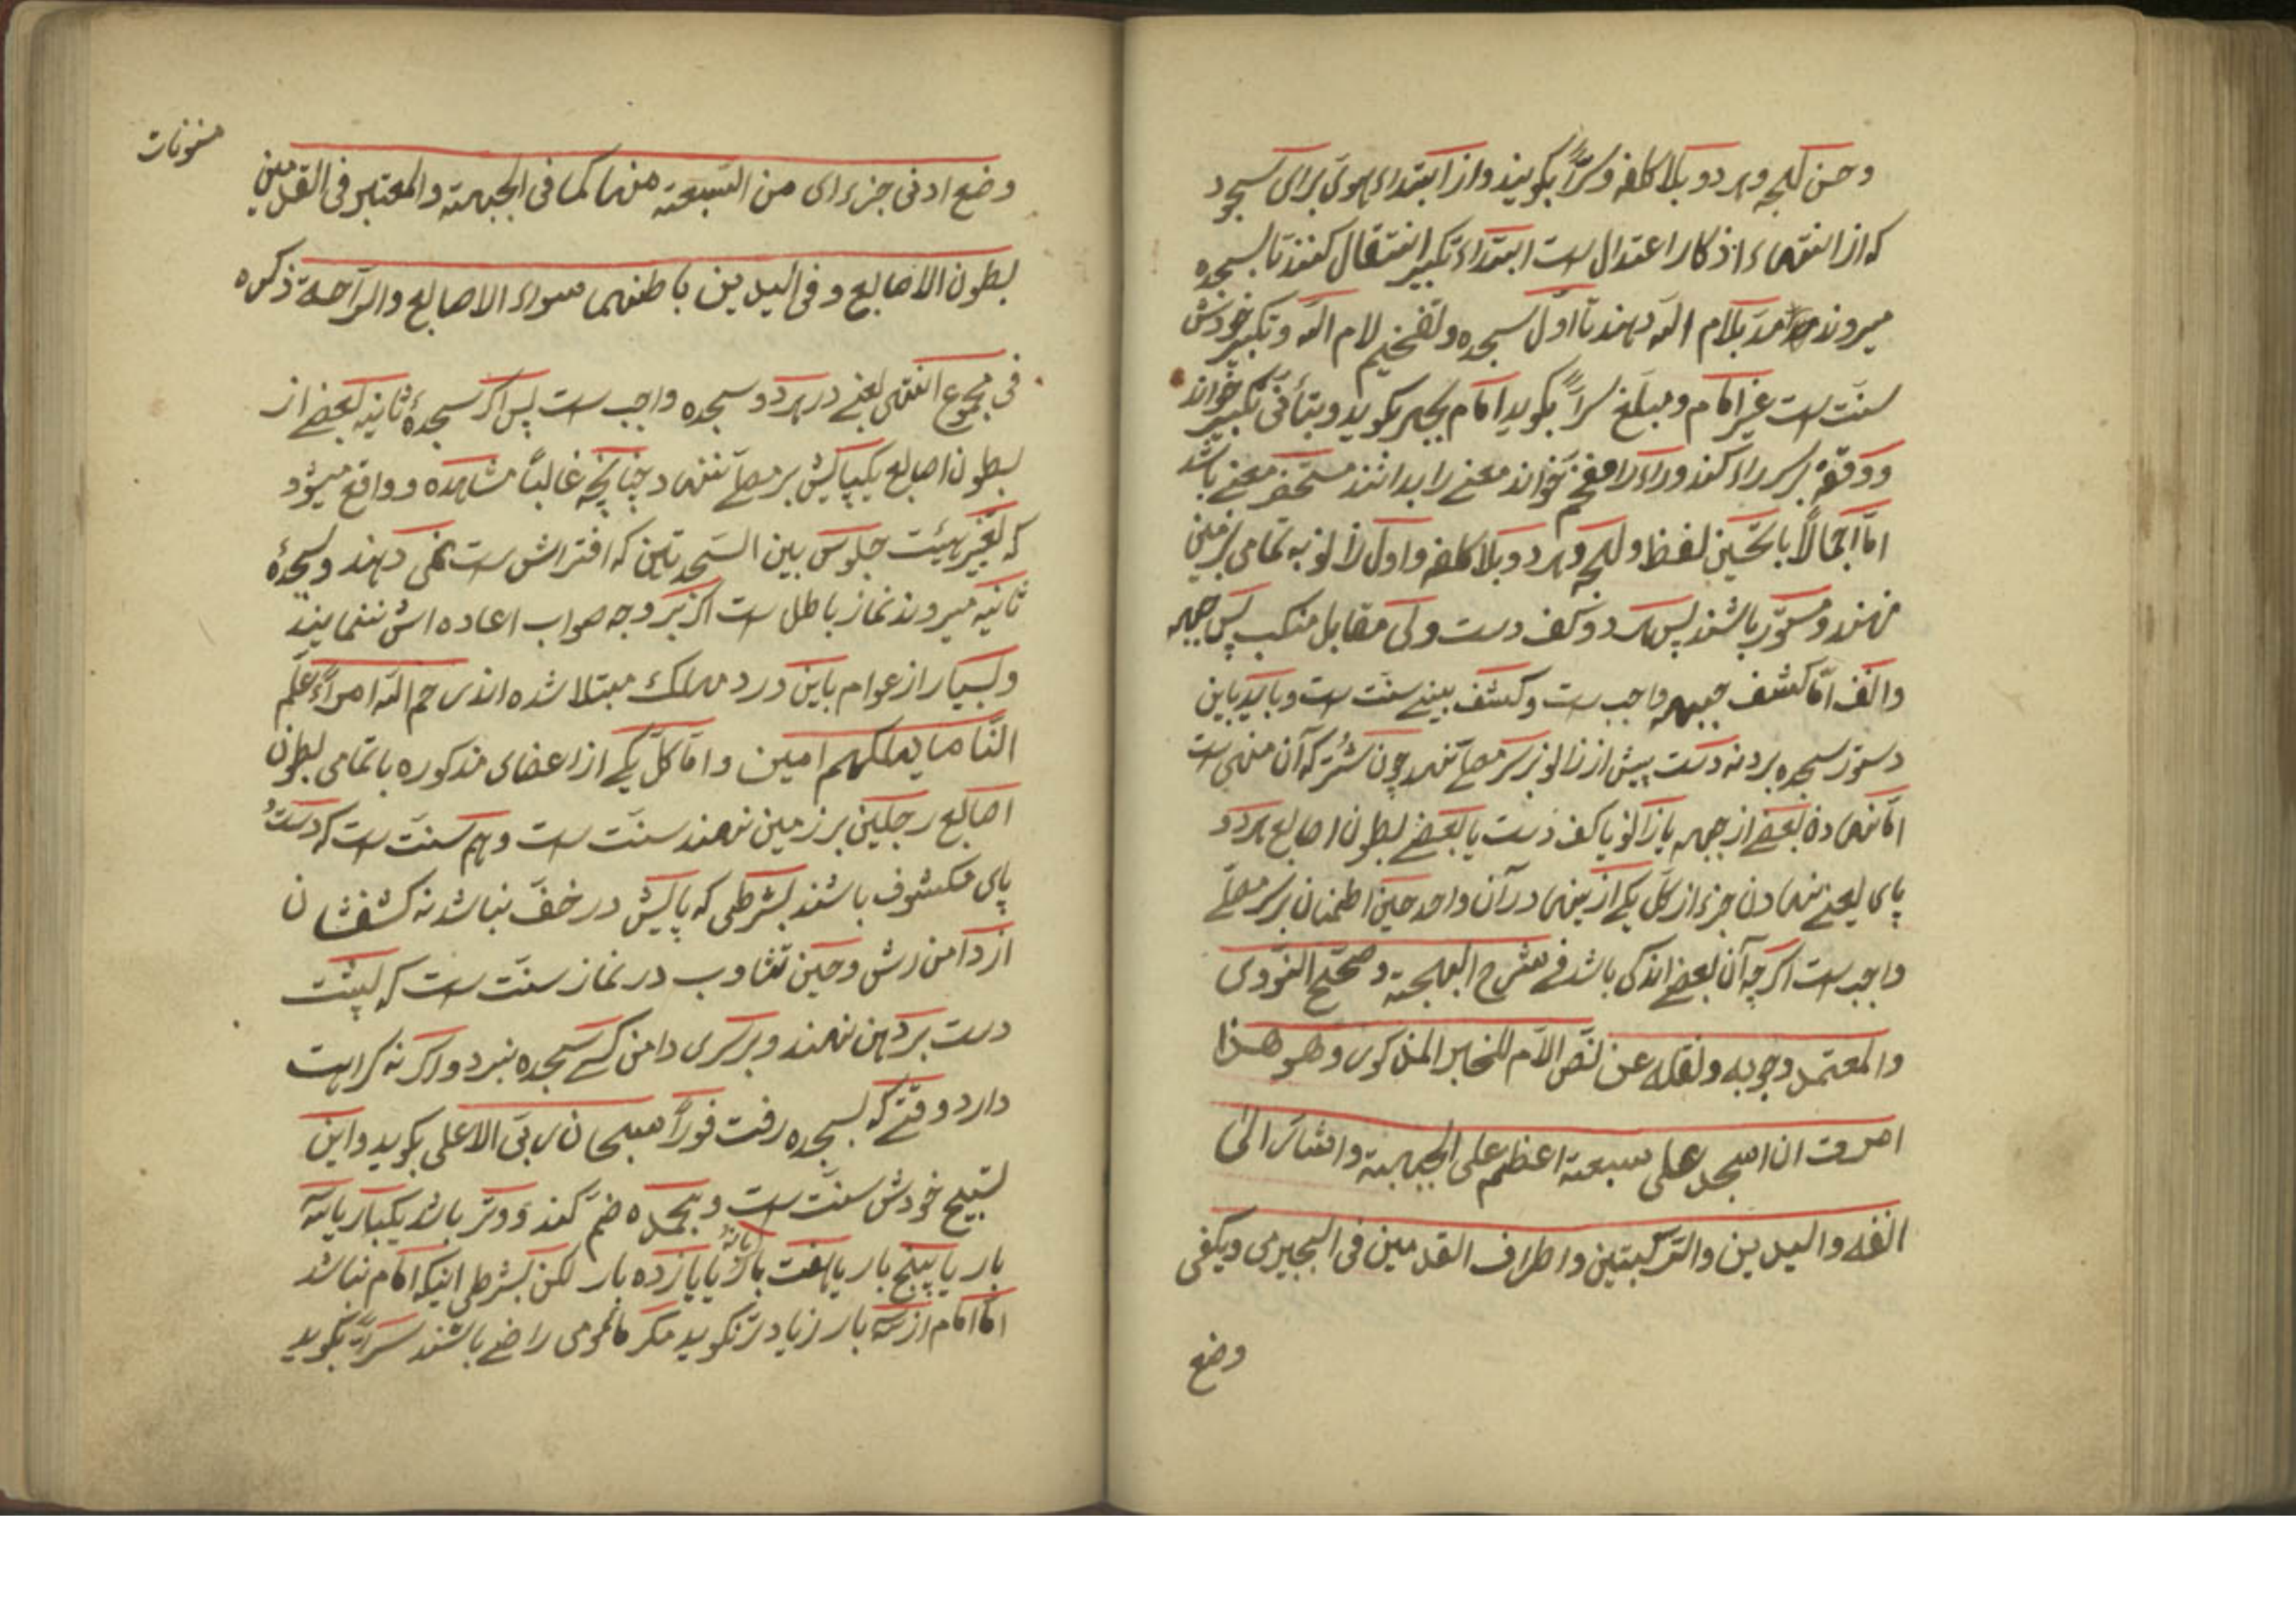 وحسن لهجه وهر دو بلا كلفه وسرًّا بكويند واز ابتداء هوى براى سجود
كه از انتهاء اذكار اعتدال است ابتداء تكبير انتقال كنند تا بسجده
ميروند مدّ بلام الله دهند تا اوّل سجده وتفخيم لام الله وتكبير خودش
سنّت است غير امام ومبلّغ سرًّا بكويد امام بجهر بكويد وبتأنّى تكبير خواند
ووقفهٔ بر سر راء كند وراء را مفخّم نخواند معنى را بدانند مستحضر معنى باشد
امّا اجمالًا با تحسين لفظ ولهجه وهر دو بلا كلفه واول زانو به تمامى بر زمين
نهند ومستور باشند پس هر دو كف دست ولى مقابل منكب پس جبهه
وانف امّا كشف جبهه واجب است وكشف بينى سنّت است وبايد باين
دستور سجده برد نه دست پيش از زانو بر سر مصلّى نهد چون شتر كه آن منهى است
امّا نهادن بعضى از جبهه يا زانو يا كف دست يا بعضى بطون اصابع هر دو
پاى يعنى نهادن جزء از كلّ يكى از ينها در آن واحد حين اطمنان بر سر مصلّى
واجب است اكرچه آن بعضى اندكى باشد فى شرح البهجة وصحّح النّووى
والمعتمد وجوبه ونقله عن نصّ الامّ للخبر المذكور وهو هذا
امرت ان اسجد على سبعة اعظم على الجبهة واشار الى
انفه واليدين والرّكبتين واطراف القدمين فى البجيرمى ويكفى
وضع
مسنونات
وضع ادنى جزء اى من السّبعة منها كما فى الجبهة والمعتبر فى القدمين
بطون الاصابع وفى اليدين باطنهما سواء الاصابع والرّاحة ذكره
فى مجموع انتهى يعنى در هر دو سجده واجب است پس اكر سجدهٔ ثانيه بعضى از
بطون اصابع يكپايش بر مصلّى ننهاد چنانچه غالبًا مشاهده وواقع ميشود
كه تغيّر هيئت جلوس بين السّجدتين كه افتراش است نمى دهند وبسجدهٔ
ثانيه ميروند نماز باطل است اكر بر وجه صواب اعاده اش ننمايند
وبسيار از عوام باين درد مهلك مبتلا شده اند رحم الله امرأً علّم
النّاس ما يهلكهم امين وامّا كلّ يكى از اعضاى مذكوره با تمامى بطون
اصابع رجلين بر زمين نهند سنّت است وهم سنّت است كه دست و
پاى مكشوف باشند بشرطى كه پايش در خفّ نباشد نه كشفشان
از دامن رش وحين تثاوب در نماز سنّت است كه پشت
دست بر دهن نهند وبر سرى دامن كسى سجده نبرد واكر نه كراهت
دارد وقتى كه بسجده رفت فورًا سبحان ربّى الاعلى بكويد واين
تسبيح خودش سنّت است وبحمده ضمّ كند ووتر باشد يكبار يا سه
بار يا پنج بار يا هفت بار يا نه بار يا يازده بار لكن بشرطى اينكه امام نباشد
امّا امام از سه بار زيادتر نكويد مكر مأمومى راضى باشند سرًّا بكويد